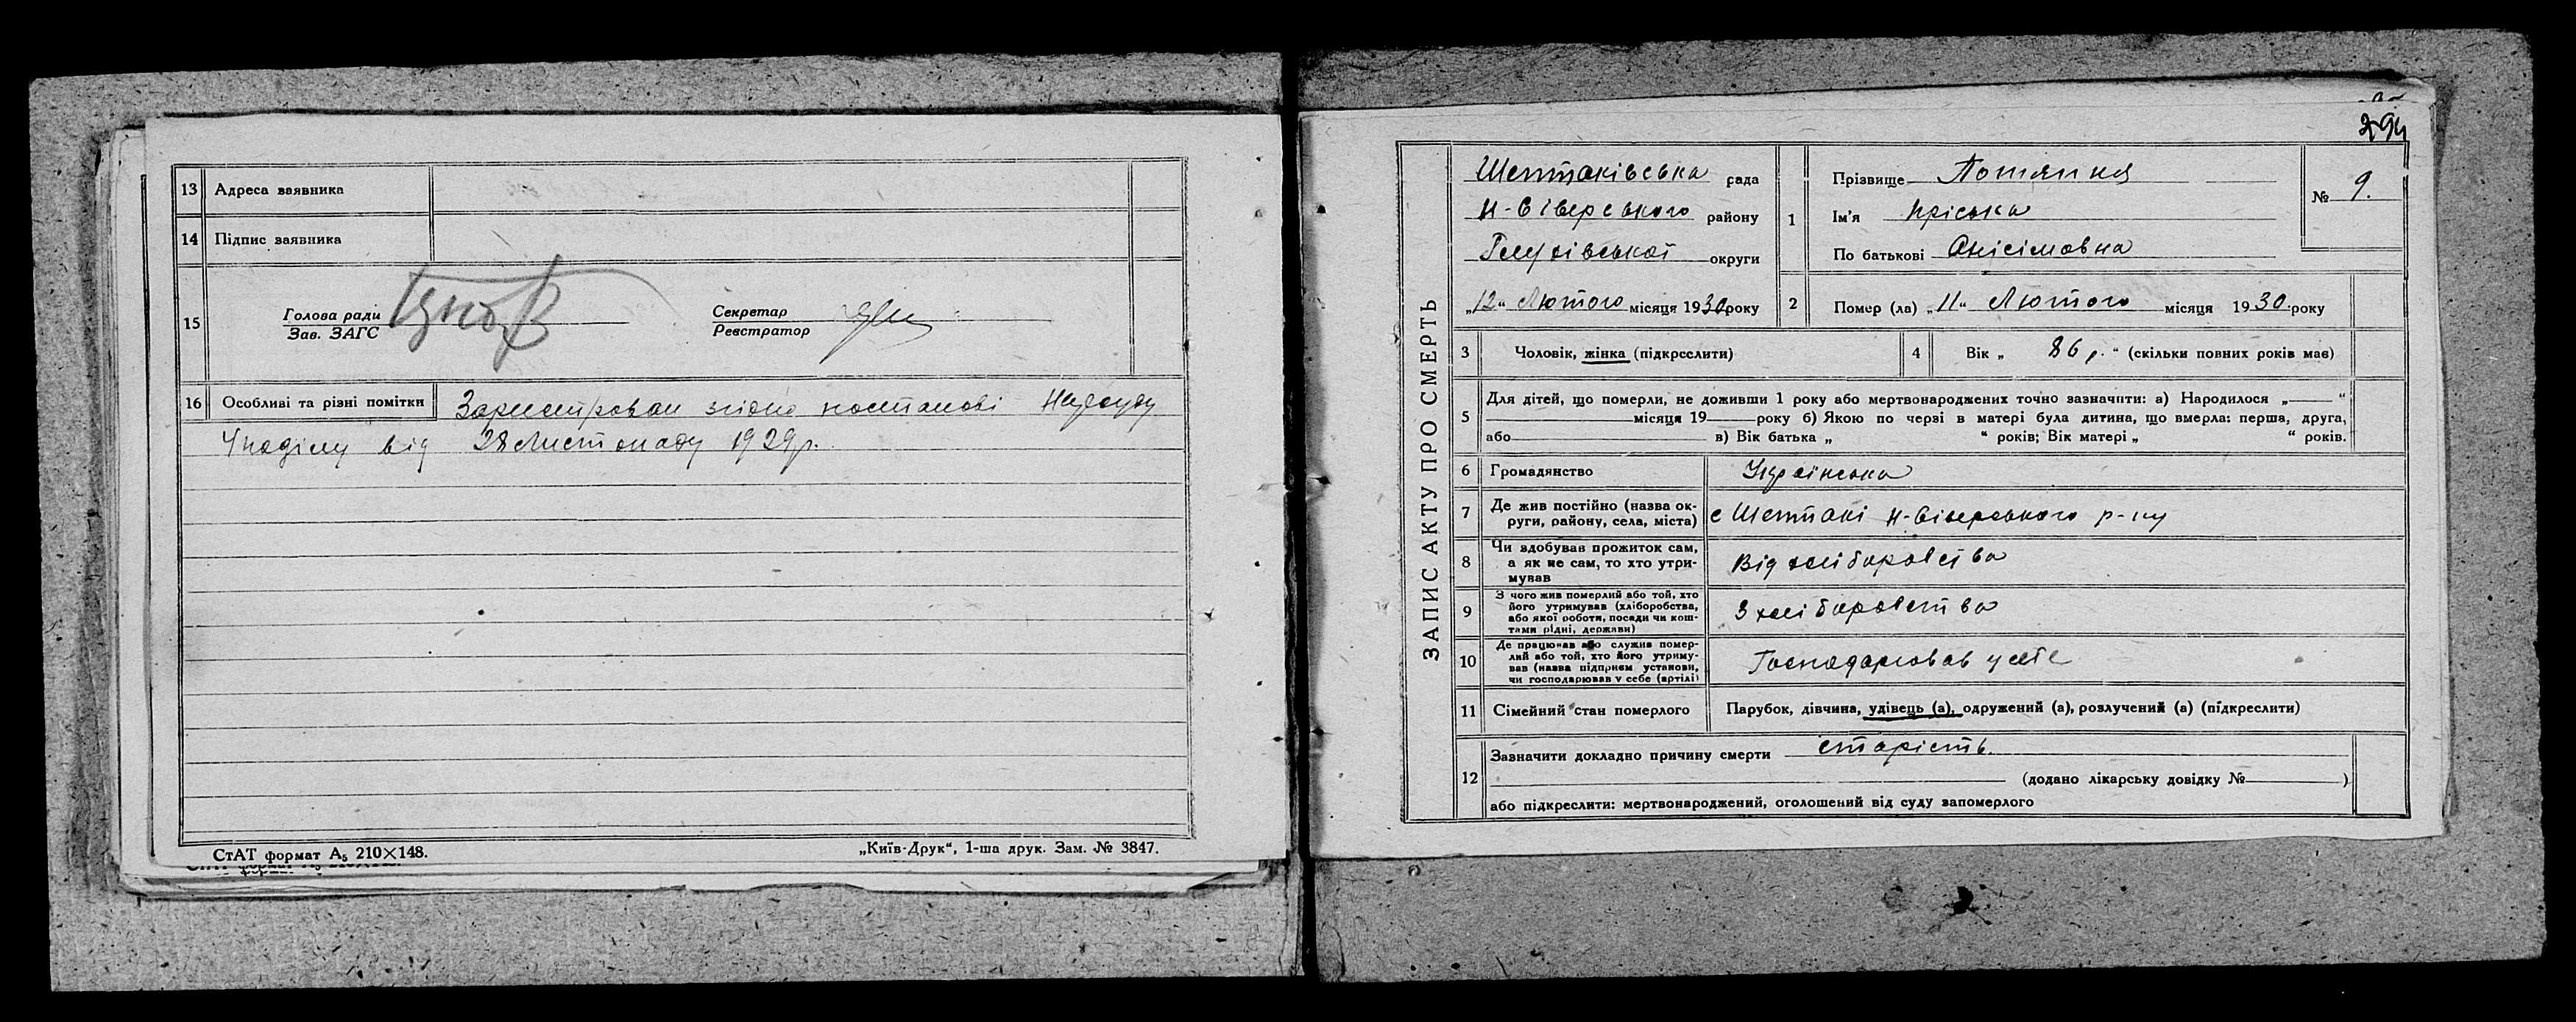 13 Адреса заявника
14 Підпис заявника
15 Голова ради
Зав. ЗАГС
Секретар
Реєстратор
16 Особливі та різні помітки Зареєстрован згідно постанові Нарсуду
4 поділу від 28 Листопаду 1929р.
СтАТ формат А₅ 210×148.
„Київ-Друк“, 1-ша друк. Зам. № 3847.
294
ЗАПИС АКТУ ПРО СМЕРТЬ
Шептаківська рада
Н-Сіверського району
Глухівської округи
„12“ Лютого місяця 1930 року
1 Прізвище
Ім'я Пріська
По батькові Онісімовна
№ 9.
2 Помер (ла) „11“ Лютого місяця 1930 року
3 Чоловік, жінка (підкреслити)
4 Вік „86 р.“ (скільки повних років має)
5 Для дітей, що померли, не доживши 1 року або мертвонароджених точно зазначити: а) Народилося „ “
місяця 19 року б) Якою по черзі в матері була дитина, що вмерла: перша, друга,
або в) Вік батька „ “ років; Вік матері „ “ років.
6 Громадянство Українська
7 Де жив постійно (назва ок-
руги, району, села, міста) с Шептакі Н-Сіверського р-ну
8 Чи здобував прожиток сам,
а як не сам, то хто утри-
мував Від хліборобства
9 З чого жив померлий або той, хто
його утримував (хліборобства,
або якої роботи, посади чи кош-
тами рідні, держави) З хліборобства
10 Де працював або служив помер-
лий або той, хто його утриму-
вав (назва підприєм установи,
чи господарював у себе (артілі) Господарював у себе
11 Сімейний стан померлого Парубок, дівчина, удівець (а), одружений (а), розлучений (а) (підкреслити)
12 Зазначити докладно причину смерти старість.
(додано лікарську довідку № )
або підкреслити: мертвонароджений, оголошений від суду запомерлого